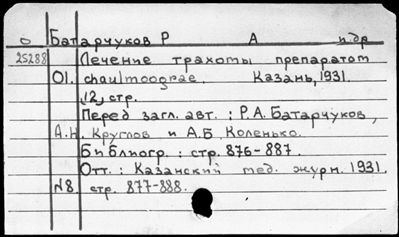 о Батарчуков Р А и др
25288 Лечение трахомы препаратом
01. chaulmoograe. Казань, 1931.
12, стр.
Перед загл. авт. : Р.А. Батарчуков,
А.Н. Круглов и А.Б. Коленько.
Библиогр. : стр. 876-887.
Отт. : Казанский мед. журн. 1931.
№8. стр. 877-888.